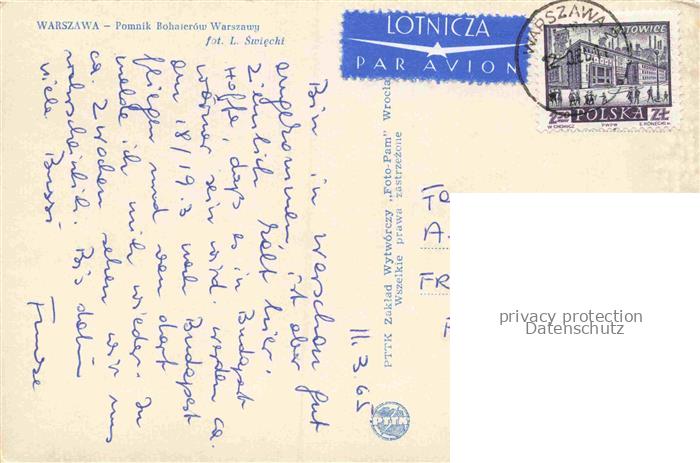 WARSZAWA – Pomnik Bohaterów Warszawy
fot. L. Święcki
LOTNICZA
PAR AVION
WARSZAWA
KATOWICE
2,50 POLSKA ZŁ
Bin in Warschau gut
angekommen, ist aber
ziemlich kalt hier.
Hoffe, daß es in Budapest
wärmer sein wird. werden ca.
am 18/19.3 nach Budapest
fliegen und von dort
melde ich mich wieder. In
ca. 2 Wochen sehen wir uns
wahrscheinlich. Bis dahin
viele Bussi
11.3.65
PTTK Zakład Wytwórczy „Foto-Pam" Wrocław
Wszelkie prawa zastrzeżone
A.
FR
privacy protection
Datenschutz